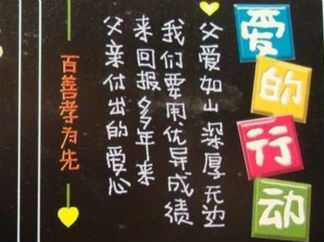 爱的行动
父爱如山深厚无边
我们要用优异成绩
来回报多年来
父亲付出的爱心
百善孝为先